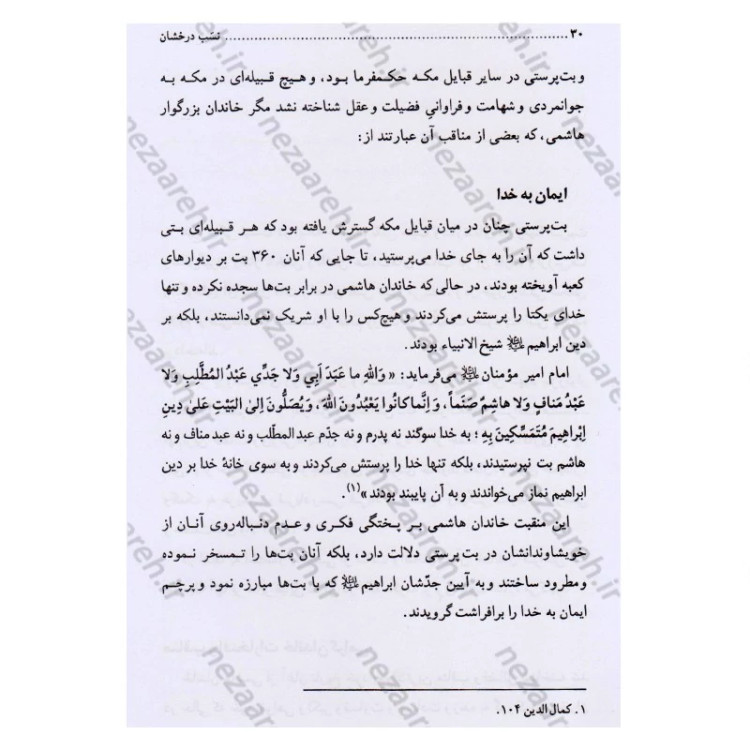 ۳۰ ........................................................ نسَب درخشان
و بت‌پرستی در سایر قبایل مکه حکمفرما بود، و هیچ قبیله‌ای در مکه به
جوانمردی و شهامت و فراوانیِ فضیلت و عقل شناخته نشد مگر خاندان بزرگوار
هاشمی، که بعضی از مناقب آن عبارتند از:
ایمان به خدا
بت‌پرستی چنان در میان قبایل مکه گسترش یافته بود که هر قبیله‌ای بتی
داشت که آن را به جای خدا می‌پرستید، تا جایی که آنان ۳۶۰ بت بر دیوارهای
کعبه آویخته بودند، در حالی که خاندان هاشمی در برابر بت‌ها سجده نکرده و تنها
خدای یکتا را پرستش می‌کردند و هیچ‌کس را با او شریک نمی‌دانستند، بلکه بر
دین ابراهیم شیخ الانبیاء بودند.
امام امیر مؤمنان می‌فرماید: «وَاللهِ ما عَبَدَ أَبِي وَلا جَدِّي عَبْدُ الْمُطَّلِبِ وَلا
عَبْدُ مَنافٍ وَلا هاشِمٌ صَنَماً، وَإِنَّما كانُوا يَعْبُدُونَ اللّهَ، وَيُصَلُّونَ إِلىَ الْبَيْتِ عَلىٰ دِينِ
إِبْراهِيمَ مُتَمَسِّكِينَ بِهِ؛ به خدا سوگند نه پدرم و نه جدّم عبد المطّلب و نه عبد مناف و نه
هاشم بت نپرستیدند، بلکه تنها خدا را پرستش می‌کردند و به سوی خانهٔ خدا بر دین
ابراهیم نماز می‌خواندند و به آن پایبند بودند»(۱).
این منقبت خاندان هاشمی بر پختگی فکری و عدم دنباله‌روی آنان از
خویشاوندانشان در بت‌پرستی دلالت دارد، بلکه آنان بت‌ها را تمسخر نموده
و مطرود ساختند و به آیین جدّشان ابراهیم که با بت‌ها مبارزه نمود و پرچم
ایمان به خدا را برافراشت گرویدند.
۱. کمال الدین ۱۰۴.
nezaareh.ir